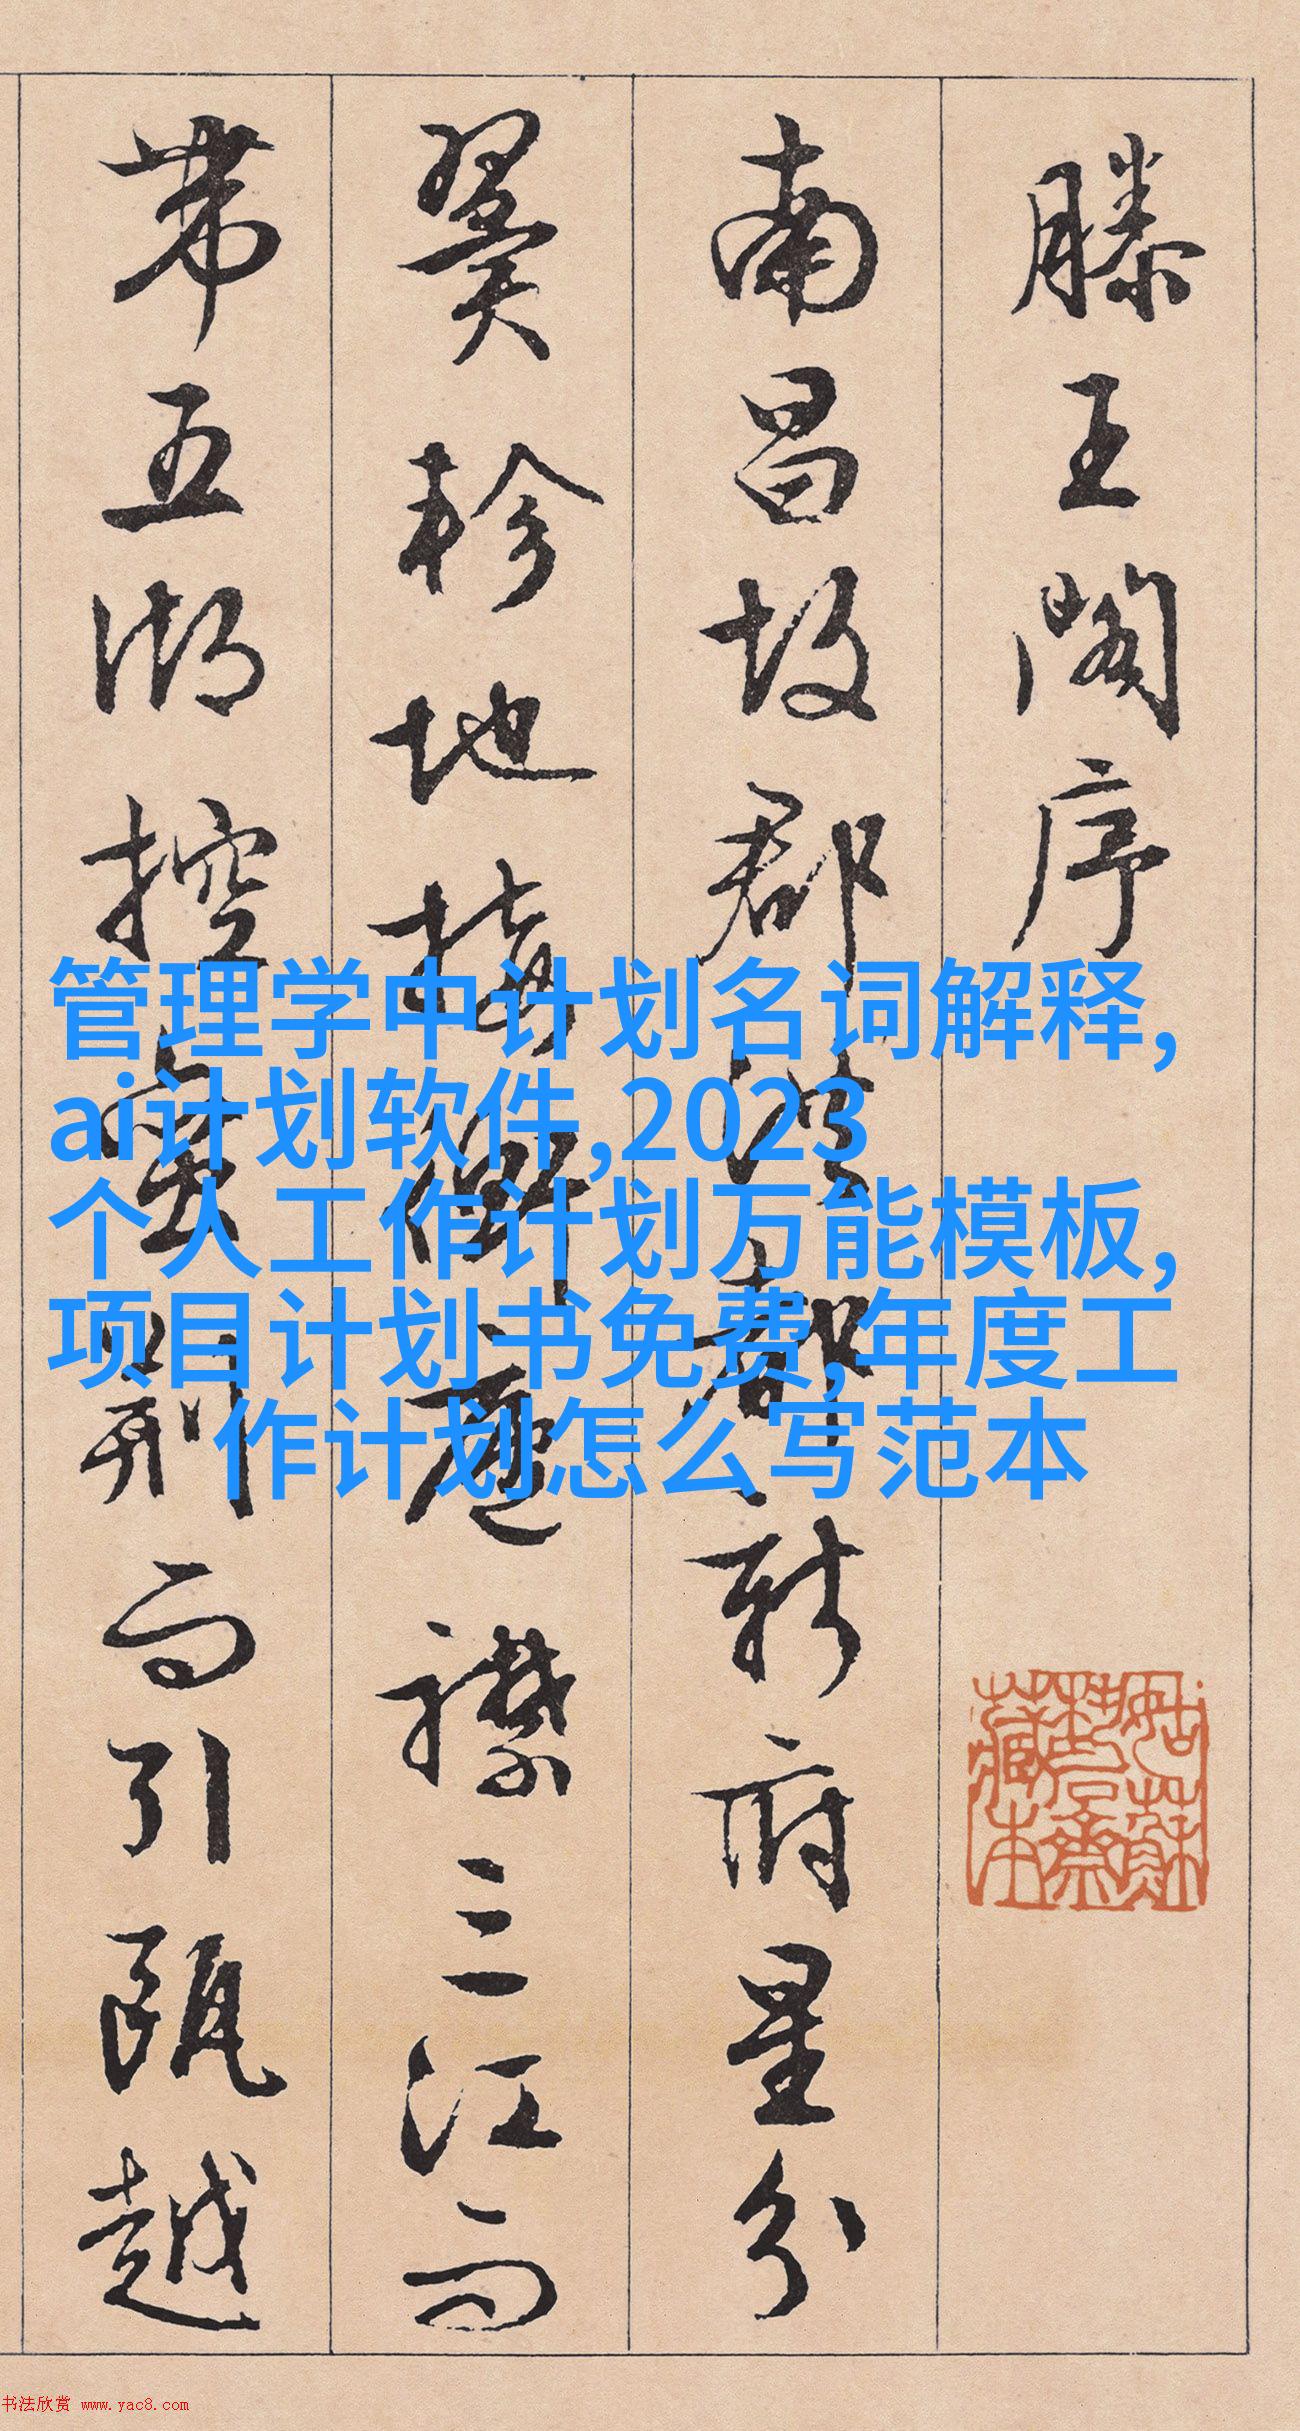 滕王阁序
南昌故郡洪都新府星分
翼轸地接衡庐襟三江而
带五湖控蛮荆而引瓯越
管理学中计划名词解释,
ai计划软件,2023
个人工作计划万能模板,
项目计划书免费,年度工
作计划怎么写范本
书法欣赏 www.yac8.com